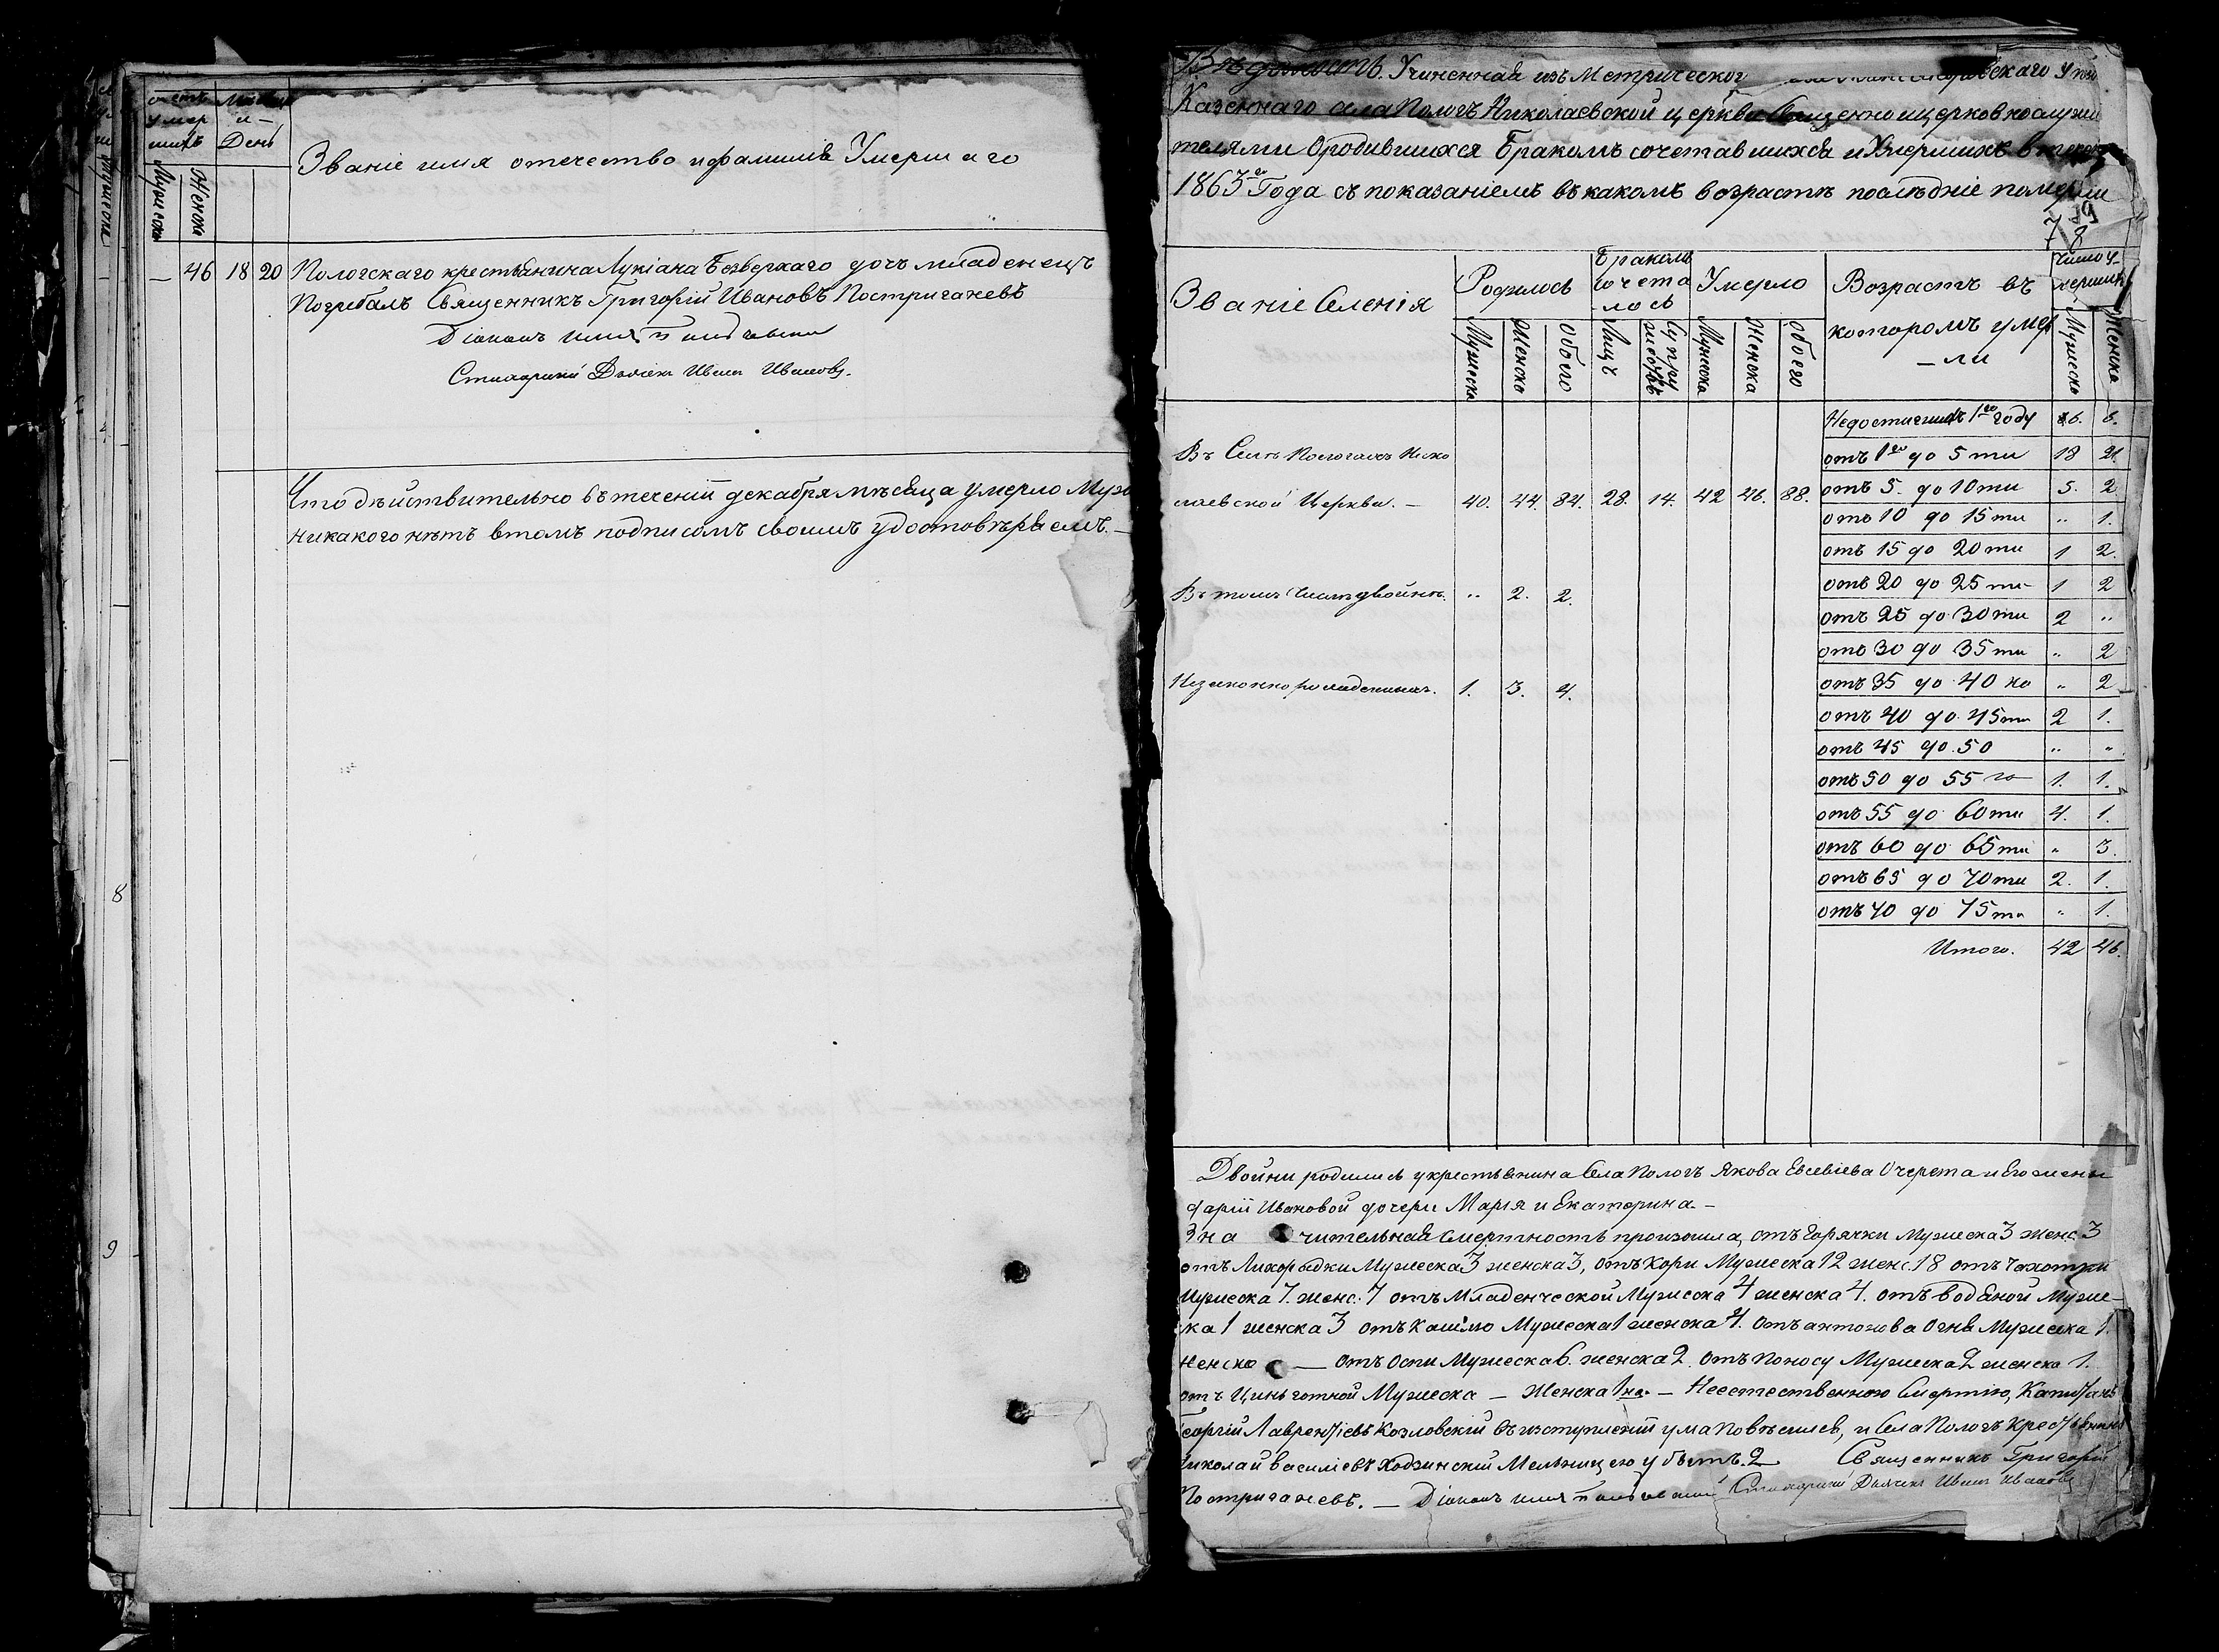 умер
шихъ
День
Званіе имя отечество и фамилія Умершаго
Мужеска
Женска
— 46 18 20 Пологскаго крестьянина Лукіана Безверхаго дочь младенецъ
Погребалъ Священникъ Григорій Ивановъ Постригачевъ
Діаконъ
Стихарный Дьячекъ Иванъ Ивановъ.
Что дѣйствительно въ теченіи декабря мѣсяца умерло
никакого нѣтъ в томъ подписомъ своимъ удостовѣряемъ. —
8
9
Вѣдомость. Учиненная изъ Метрическог
Казеннаго села Пологъ Николаевской церкви Священно и церковнослужи
телями О родившихся Бракомъ сочетавшихся и Умершихъ в
1863го Года съ показаніемъ въ какомъ возрастѣ послѣдніе померли
78
Званіе Селенія
Родилось
Бракомъ
сочета
лось
Умерло
Возрастъ въ
которомъ умер
— ли
Число у
мершихъ
Мужеска
Женска
Обоего
Лицъ
Супру
жествъ
Мужеска
Женска
Обоего
Мужеска
Женска
Недостигшихъ 1го году 6. 6.
отъ 1го до 5ти 18 21.
Въ Селѣ Пологахъ Нико
лаевской Церкви. — 40. 44. 84. 28. 14. 42 46. 88.
отъ 5. до 10ти 5. 2
отъ 10 до 15ти „ 1.
отъ 15 до 20ти 1 2.
отъ 20 до 25ти 1 2
Въ томъ числѣ двойнѣ. „ 2. 2.
отъ 25 до 30ти 2 „
отъ 30 до 35ти „ 2
отъ 35 до 40ко „ 2
Незаконнорожденныхъ. 1. 3. 4.
отъ 40 до 45ти 2 1.
отъ 45 до 50 „ „
отъ 50 до 55 1. 1.
отъ 55 до 60ти 4. 1.
отъ 60 до 65ти „ 3.
отъ 65 до 70ти 2. 1.
отъ 70 до 75ти „ 1.
Итого. 42 46.
Двойни родились у крестьянина Села Пологъ Якова Евсевіева Очерета и Его жены
Дарии Ивановой дочери Марія и Екатерина —
Зна чительная Смертность произошла, отъ Горячки Мужеска 3 женс. 3
отъ Лихорадки Мужеска 3 женска 3, отъ Кори Мужеска 12 женс. 18 отъ чахотки
Мужеска 7. женс. 7 отъ Младенческой Мужеска 4 женска 4. отъ водяной Муже—
ка 1 женска 3 отъ кашлю Мужеска 1 женска 4. Отъ антонова Огня Мужеска 1.
женска — отъ Оспи Мужеска 6. женска 2. отъ Поносу Мужеска 2 женска 1.
отъ Цынготной Мужеска — Женска 1на. — Неестественною Смертію, Капитанъ
Георгій Лаврентіевъ Козловскій въ изступленіи ума повѣсился, и Села Пологъ Крестьянинъ
Николай Василіевъ Ходзинскій Мельницею убитъ. 2 Священникъ Григорій
Постригачевъ. — Діаконъ Стихарный Дьячекъ Иванъ Ивановъ